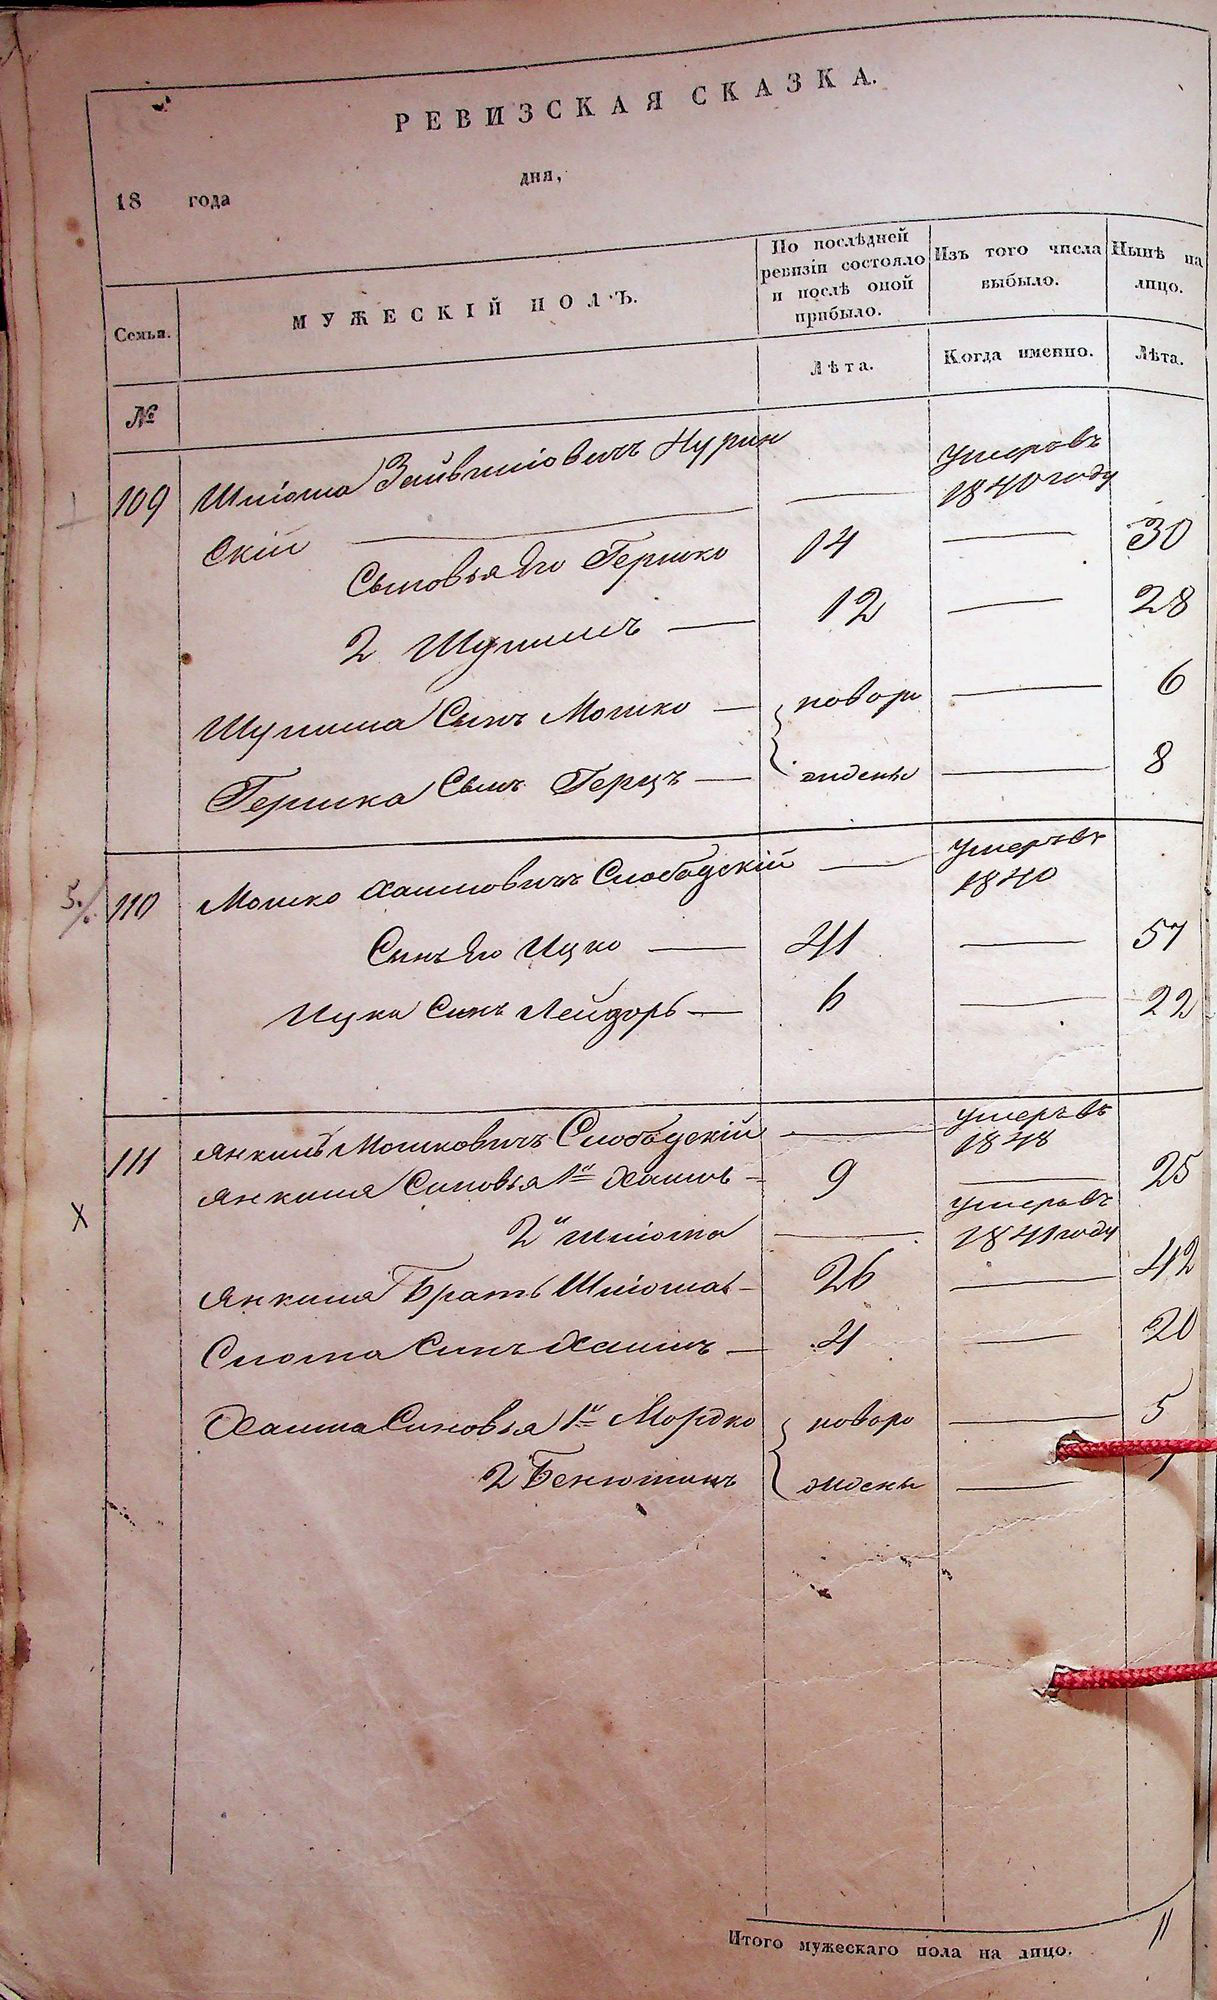 РЕВИЗСКАЯ СКАЗКА.
18 года дня,
Семьи.
МУЖЕСКІЙ ПОЛЪ.
По послѣдней ревизіи состояло и послѣ оной прибыло.
Изъ того числа выбыло.
Нынѣ на лицо.
Лѣта.
Когда именно.
Лѣта.
№
109 Шліома Зейвиліовичъ Нурин
Умеръ въ 1840 году
скій
Сыновья его Гершко 14 30
2 Шулимъ 12 28
Шулима Сынъ Мошко новоро 6
Гершка Сынъ Герцъ жденые 8
110 Мошко Хаимовичъ Слободскій
Умеръ въ 1840
Сынъ его Ицко 41 57
Ицка Сынъ Лейзоръ 6 22
111 Янкель Мошковичъ Слободскій
умеръ въ 1848
Янкиля Синовья 1й Хаимъ 9 25
2й Шліома
умеръ въ 1841 году
Янкиля Братъ Шліома 26 42
Сліома Синъ Хаимъ 4 20
Хаима Синовья 1й Мордко новоро 5
2й Бенюминъ жденые
Итого мужескаго пола на лицо. 11